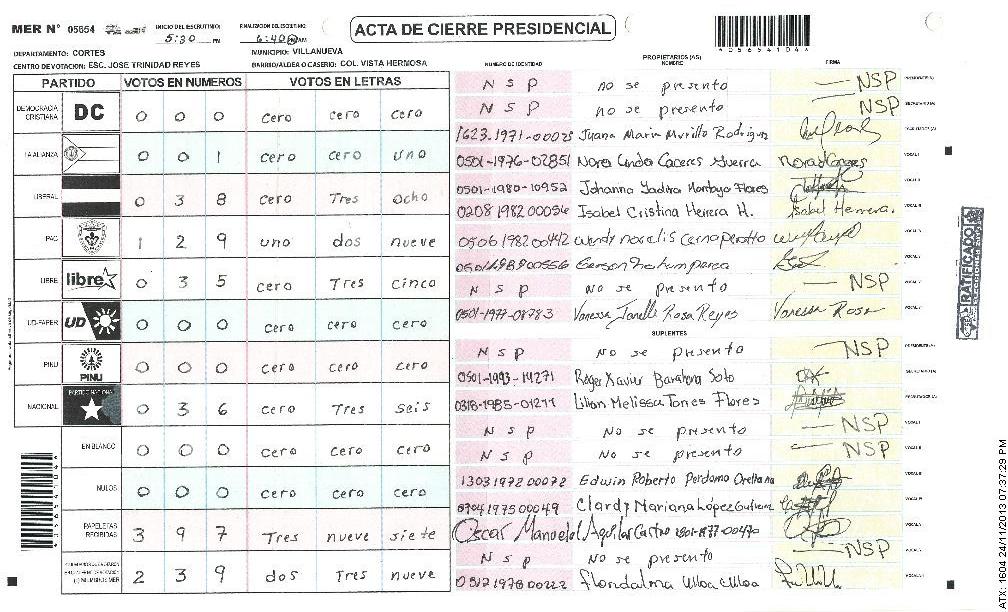 MER N° 05654
INICIO DEL ESCRUTINIO:
5:30 PM
FINALIZACION DEL ESCRUTINIO:
6:40 PM AM
ACTA DE CIERRE PRESIDENCIAL
DEPARTAMENTO: CORTES
MUNICIPIO: VILLANUEVA
CENTRO DE VOTACION: ESC. JOSE TRINIDAD REYES
BARRIO/ALDEA O CASERIO: COL. VISTA HERMOSA
PROPIETARIOS (AS)
NUMERO DE IDENTIDAD NOMBRE FIRMA
PARTIDO VOTOS EN NUMEROS VOTOS EN LETRAS
DEMOCRACIA CRISTIANA DC 0 0 0 cero cero cero
LA ALIANZA 0 0 1 cero cero uno
LIBERAL 0 3 8 cero Tres ocho
PAC 1 2 9 uno dos nueve
LIBRE libre 0 3 5 cero Tres cinco
UD-FAPER UD 0 0 0 cero cero cero
PINU PINU 0 0 0 cero cero cero
NACIONAL PARTIDO NACIONAL 0 3 6 cero Tres seis
EN BLANCO 0 0 0 cero cero cero
NULOS 0 0 0 cero cero cero
PAPELETAS RECIBIDAS 3 9 7 Tres nueve siete
2 3 9 dos Tres nueve
N S P no se presento NSP
N S P no se presento NSP
1623-1971-00025 Juana Maria Murillo Rodriguez
0501-1976-02851 Nora Linda Caceres Guerra
0501-1980-10952 Johanna Yadira Montoya Flores
0208 1982 00056 Isabel Cristina Herrera H. Isabel Herrera.
0506 1982 00442 Wendy
N S P No se presento NSP
0501-1977-08783 Vanessa Janelle Rosa Reyes Vanessa Rosa
SUPLENTES
N S P No se presento NSP
0501-1993-14271 Roger Xavier Barahona Soto
0318-1985-01277 Lilian Melissa Torres Flores
N S P No se presento NSP
N S P No se presento NSP
1303 1972 00072 Edwin Roberto Perdomo Orellana
0704 1975 00049 Clardy Mariana López Gutierrez
Oscar Manuel Aguilar Castro
N S P No se presento NSP
0512 1978 00222 Flondalma Ulloa Ulloa
RATIFICADO
ATX-1604 24/11/2013 07:37:29 PM